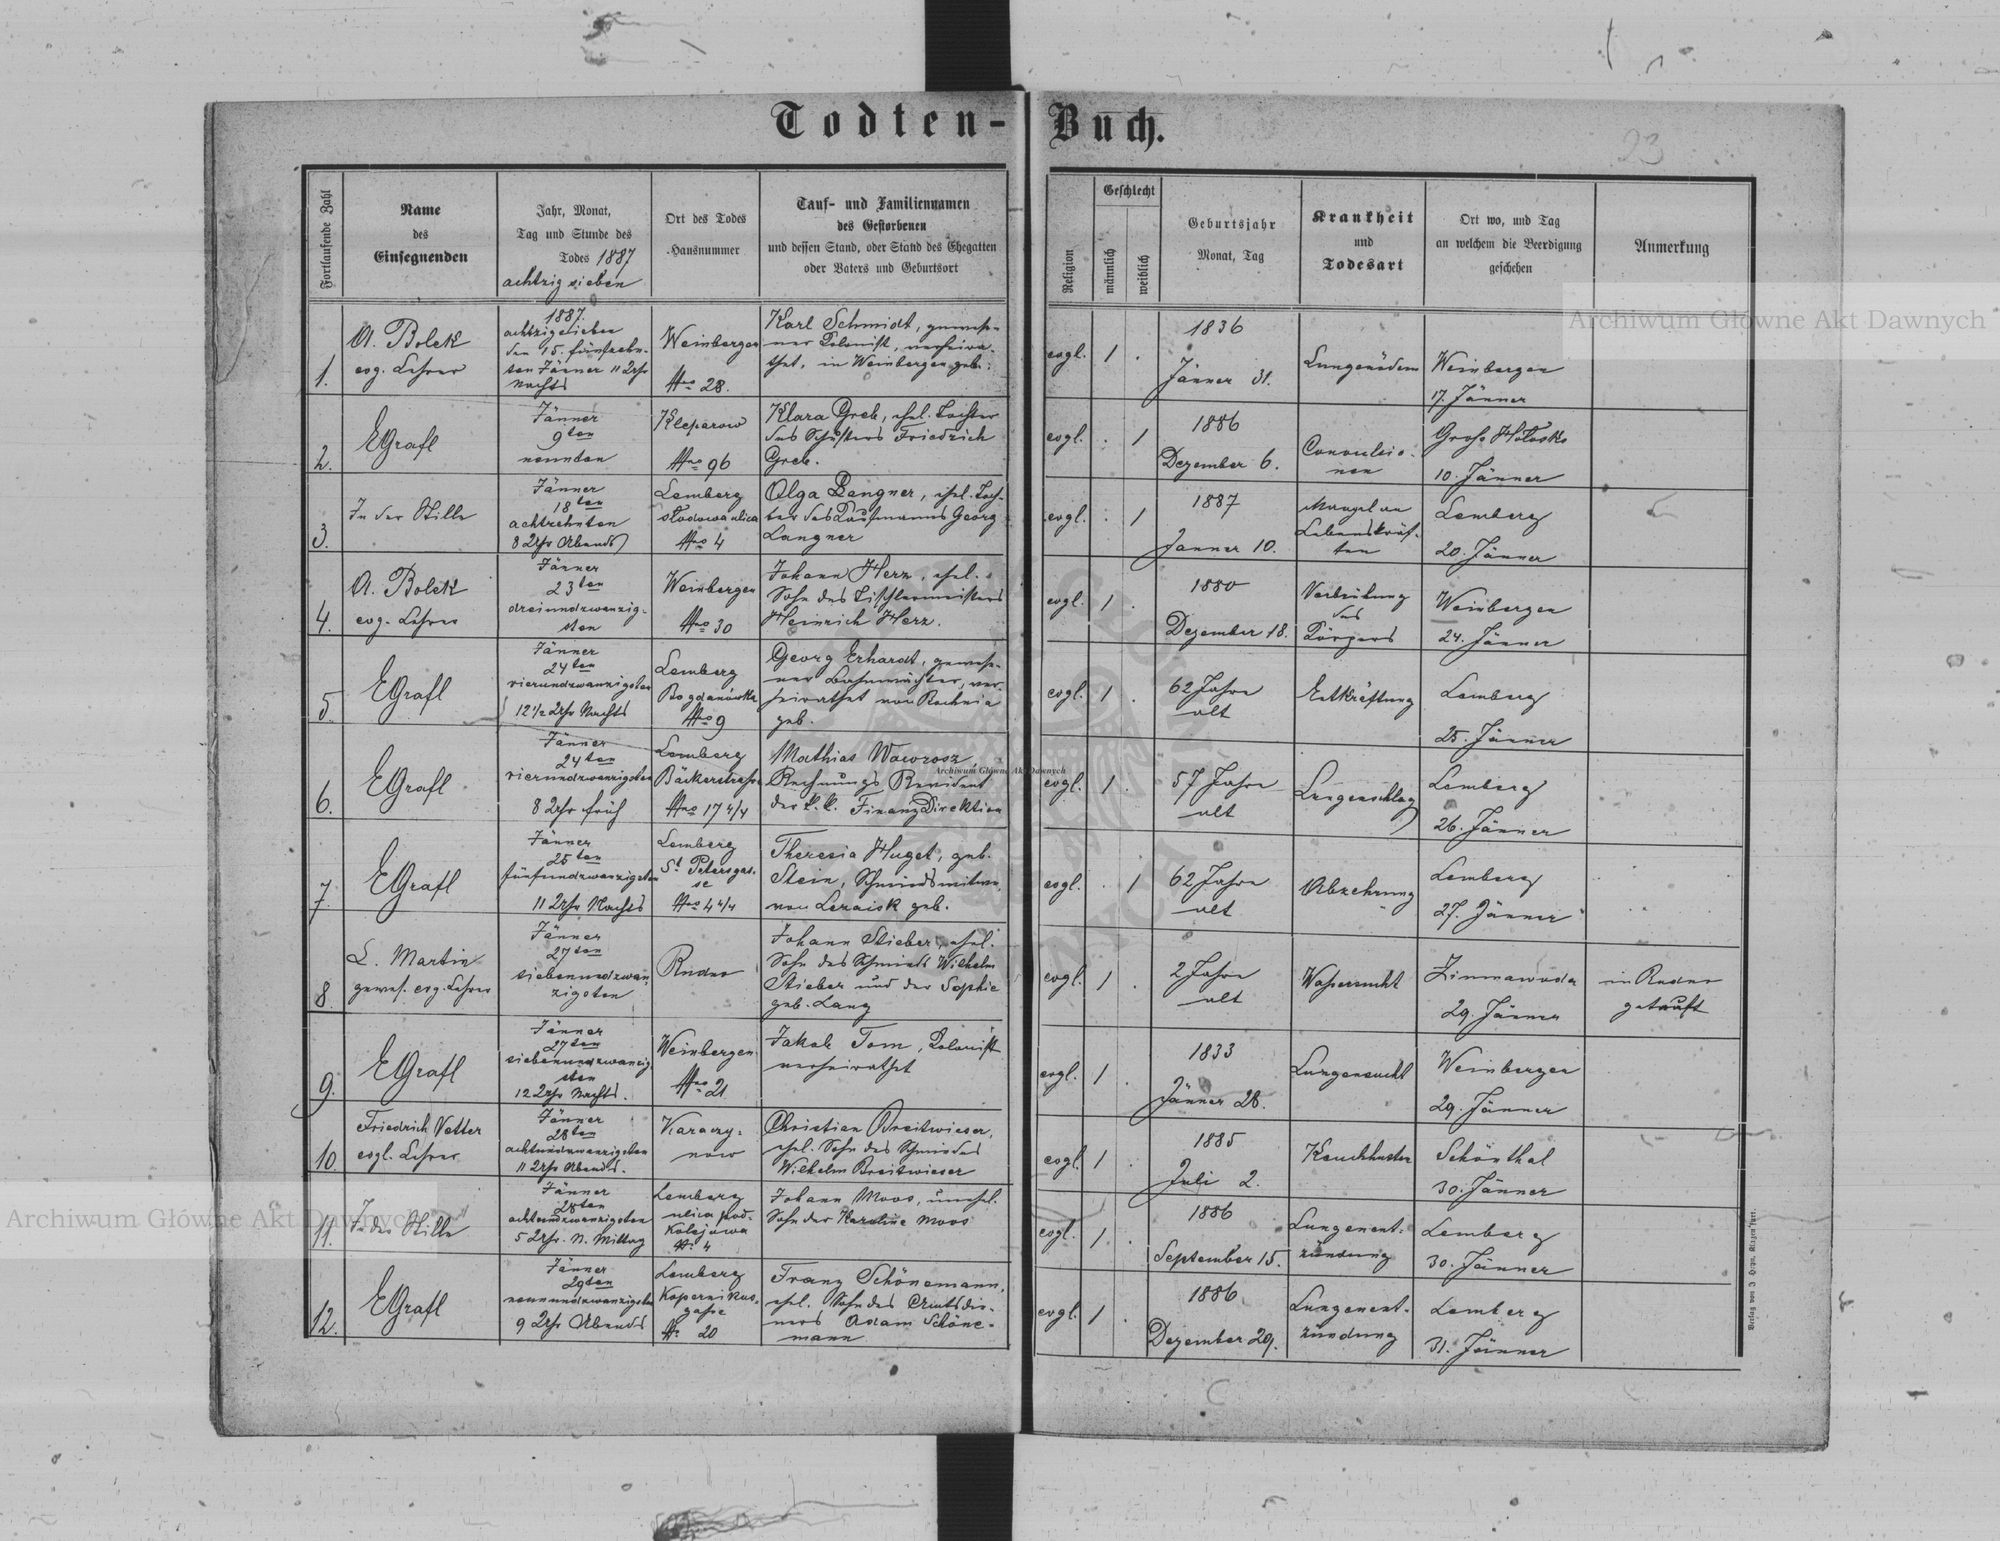 Todten-Buch.
23
Fortlaufende Zahl
Name
des
Einsegnenden
Jahr, Monat,
Tag und Stunde des
Todes 1887
achtzig sieben
Ort des Todes
Hausnummer
Tauf- und Familiennamen
des Gestorbenen
und dessen Stand, oder Stand des Ehegatten
oder Vaters und Geburtsort
Religion
Geschlecht
männlich
weiblich
Geburtsjahr
Monat, Tag
Krankheit
und
Todesart
Ort wo, und Tag
an welchem die Beerdigung
geschehen
Anmerkung
1.
A. Bolek
evg. Lehrer
1887.
achtzigsieben
den 15. fünfzehn-
ten Jänner 11 Uhr
Nachts
Weinbergen
Nro 28.
Karl Schmidt, gewese-
ner Kolonist, verheira-
thet, in Weinbergen geb.
evgl.
1
.
1836
Jänner 31.
Lungenödem
Weinbergen
17. Jänner
2.
EGrafl
Jänner
9ten
neunten
Kleparow
Nro 96
Klara Greb, ehel. Tochter
des Schusters Friedrich
Greb.
evgl.
.
1
1886
Dezember 6.
Convulsio-
nen
Groß Hołosko
10. Jänner
3.
In der Stille
Jänner
18ten
achtzehnten
8 Uhr Abends
Lemberg
słodowa ulica
Nro 4
Olga Langner, ehel. Toch-
ter des Kaufmanns Georg
Langner
evgl.
.
1
1887
Janner 10.
Mangel an
Lebenskräf-
ten
Lemberg
20. Jänner
4.
A. Bolek
evg. Lehrer
Jänner
23ten
dreiundzwanzig-
sten
Weinbergen
Nro 30
Johann Herz, ehel.
Sohn des Tischlermeisters
Heinrich Herz.
evgl.
1
.
1880
Dezember 18.
Verbrühung
des
Körpers
Weinbergen
24. Jänner
5.
EGrafl
Jänner
24ten
vierundzwanzigsten
12 1/2 Uhr Nachts
Lemberg
Bogdanówka
Nro 9
Georg Erhardt, gewese-
ner Bahnwächter, ver-
heirathet von Bochnia
geb.
evgl.
1
.
62 Jahre
alt
Entkräftung
Lemberg
25. Jänner
6.
EGrafl
Jänner
24ten
vierundzwanzigsten
8 Uhr früh
Lemberg
Bäckerstraße
Nro 17 4/4
Mathias Wawrosz,
Rechnungs Revident
der k. k. Finanz Direktion
evgl.
1
.
57 Jahre
alt
Lungenschlag
Lemberg
26. Jänner
7.
EGrafl
Jänner
25ten
fünfundzwanzigsten
11 Uhr Nachts
Lemberg
St Petersgas-
se
Nro 4 4/4
Theresia Huget, geb.
Stein, Schmiedswitwe,
von Leraisk geb.
evgl.
.
1
62 Jahre
alt
Abzehrung
Lemberg
27. Jänner
8.
L. Martin
gewes. evg. Lehrer
Jänner
27ten
siebenundzwan-
zigsten
Rudno
Johann Stieber, ehel.
Sohn des Schmieds Wilhelm
Stieber und der Sophie
geb. Lang
evgl.
1
.
2 Jahre
alt
Waßersucht
Zimnawoda
29. Jänner
in Rudno
getauft
9.
EGrafl
Jänner
27ten
siebenundzwanzig
sten
12 Uhr Nachts.
Weinbergen
Nro 21
Jakob Tom, Kolonist
verheirathet
evgl.
1
.
1833
Jänner 28.
Lungensucht
Weinbergen
29. Jänner
10.
Friedrich Vetter
evgl. Lehrer
Jänner
28ten
achtundzwanzigsten
11 Uhr Abends.
Karaczy-
now
Christian Breitwieser,
ehel. Sohn des Schmiedes
Wilhelm Breitwieser
evgl.
1
.
1885
Juli 2.
Keuchhusten
Schönthal
30. Jänner
11.
In der Stille
Jänner
28ten
achtundzwanzigsten
5 Uhr. N. Mittag
Lemberg
ulica pod-
Kolejowa
Nr. 4
Johann Moos, unehel.
Sohn der Karoline Moos
evgl.
1
.
1886
September 15.
Lungenent-
zündung
Lemberg
30. Jänner
12.
EGrafl
Jänner
29ten
neunundzwanzigsten
9 Uhr Abends
Lemberg
Kopernikus-
gaße
Nr. 20
Franz Schönemann,
ehel. Sohn des Amtsdie-
ners Adam Schöne-
mann
evgl.
1
.
1886
Dezember 29.
Lungenent-
zündung
Lemberg
31. Jänner
Archiwum Główne Akt Dawnych
Archiwum Główne Akt Dawnych
Archiwum Główne Akt Dawnych